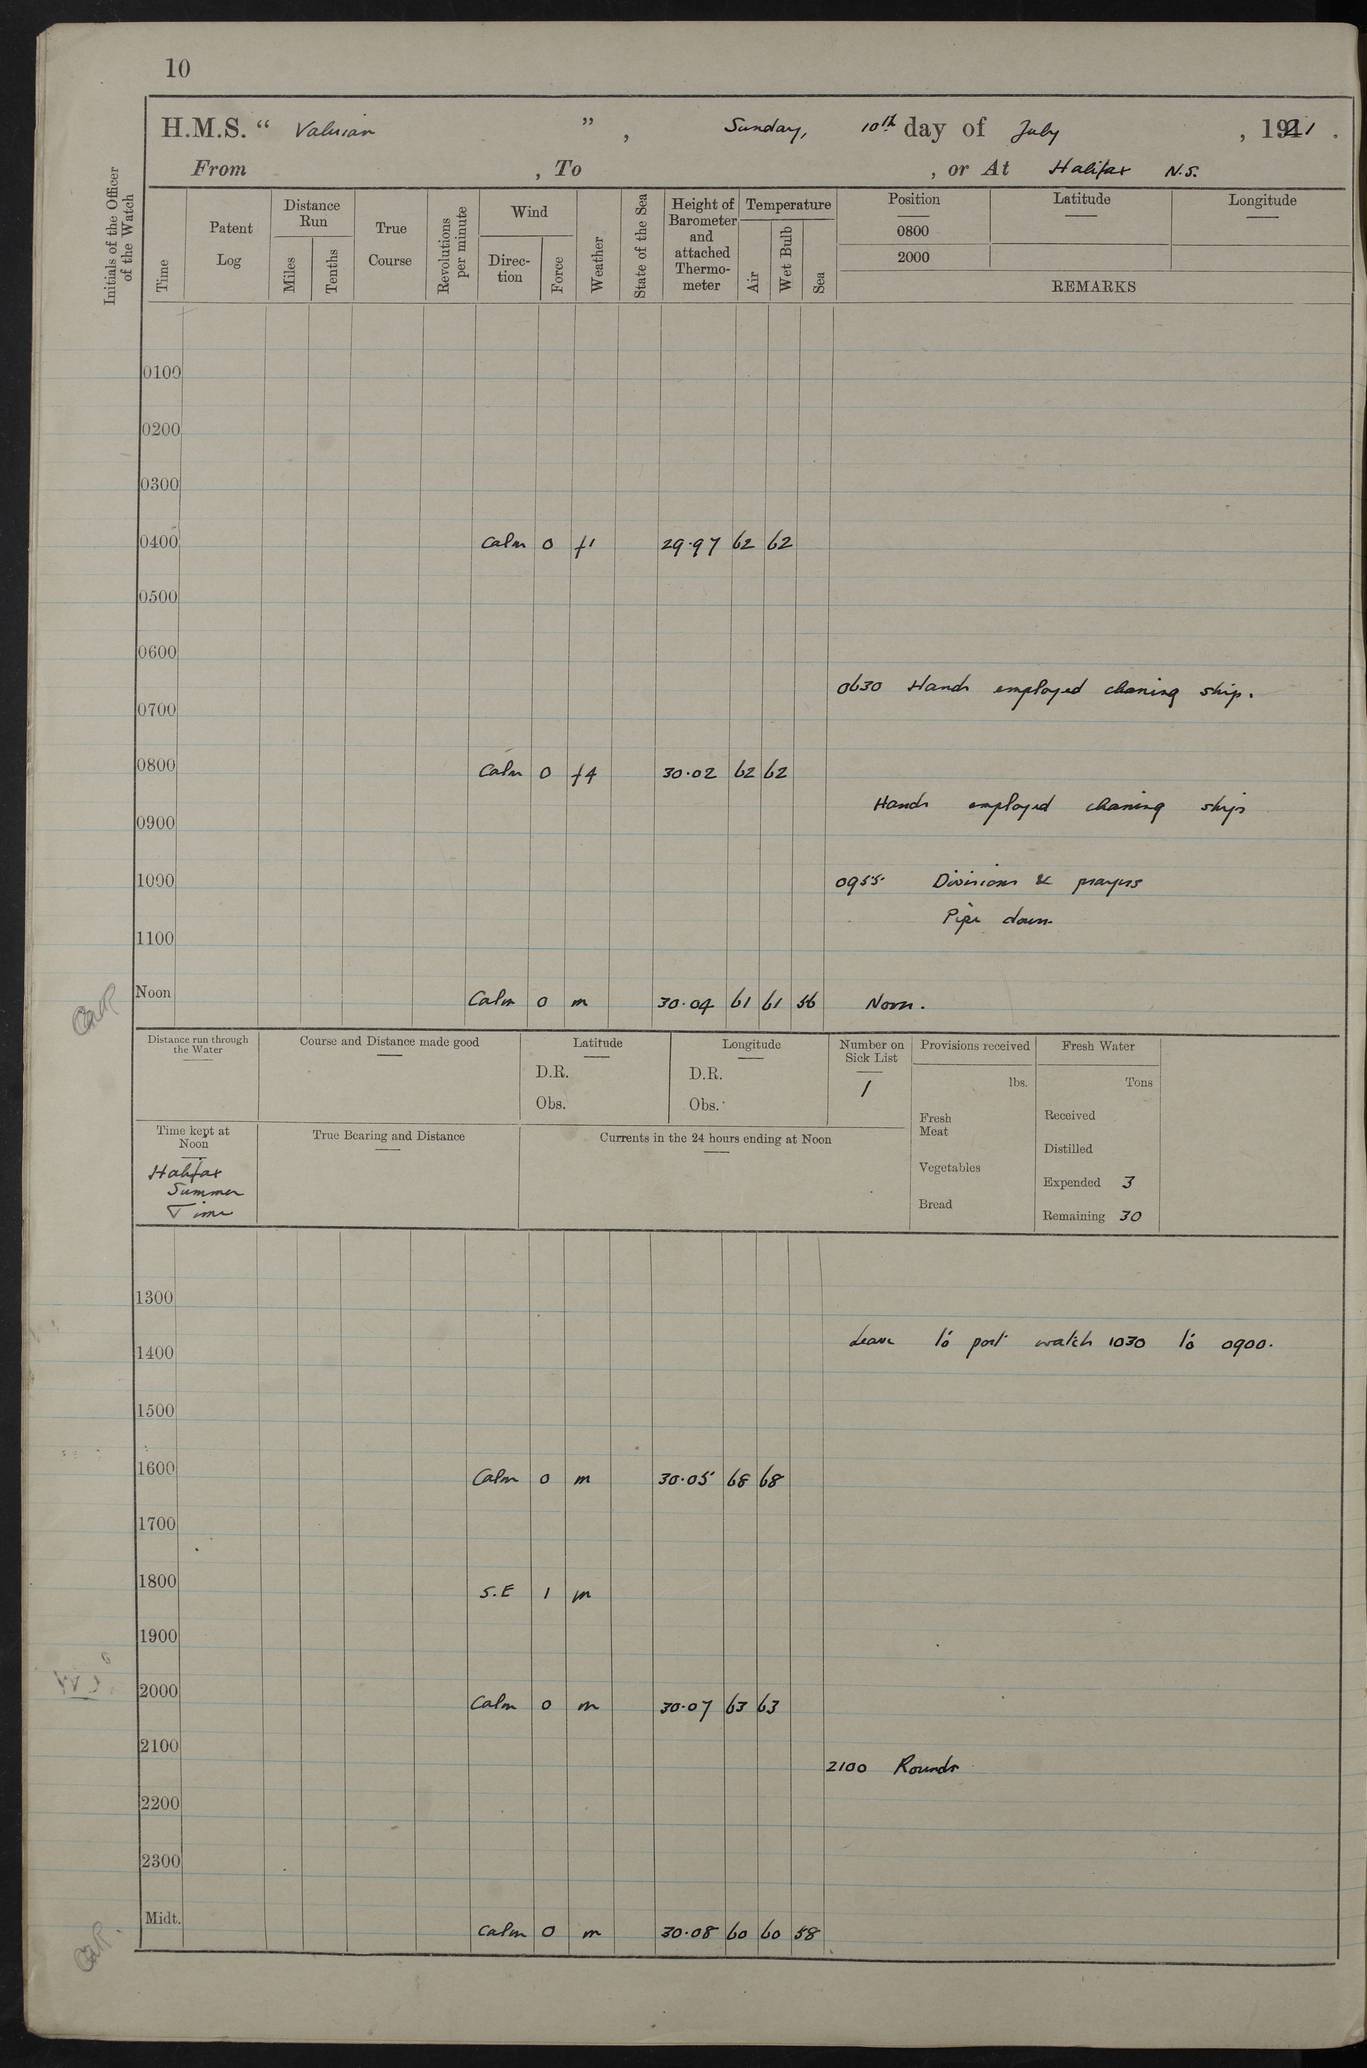 10
H.M.S. “ Valerian ” , Sunday, 10th day of July , 1921 .
From , To , or At Halifax N.S.
Initials of the Officer of the Watch
Time
Patent Log
Distance Run
Miles
Tenths
True Course
Revolutions per minute
Wind
Direc-tion
Force
Weather
State of the Sea
Height of Barometer and attached Thermo-meter
Temperature
Air
Wet Bulb
Sea
Position Latitude Longitude
0800
2000
REMARKS
0100
0200
0300
0400 Calm 0 f1 29.97 62 62
0500
0600
0630 Hands employed cleaning ship.
0700
0800 Calm 0 f4 30.02 62 62
Hands employed cleaning ship
0900
1090 0955 Divisions & prayers
Pipe down
1100
Noon Calm 0 m 30.04 61 61 56 Noon.
Distance run through the Water
Course and Distance made good
Latitude
D.R.
Obs.
Longitude
D.R.
Obs.
Number on Sick List
1
Provisions received
lbs.
Fresh Meat
Vegetables
Bread
Fresh Water
Tons
Received
Distilled
Expended 3
Remaining 30
Time kept at Noon
Halifax
Summer
Time
True Bearing and Distance
Currents in the 24 hours ending at Noon
1300
Leave to port watch 1030 to 0900.
1400
1500
1600 Calm 0 m 30.05 68 68
1700
1800 S.E 1 m
1900
2000 Calm 0 m 30.07 63 63
2100
2100 Rounds
2200
2300
Midt. Calm 0 m 30.08 60 60 58